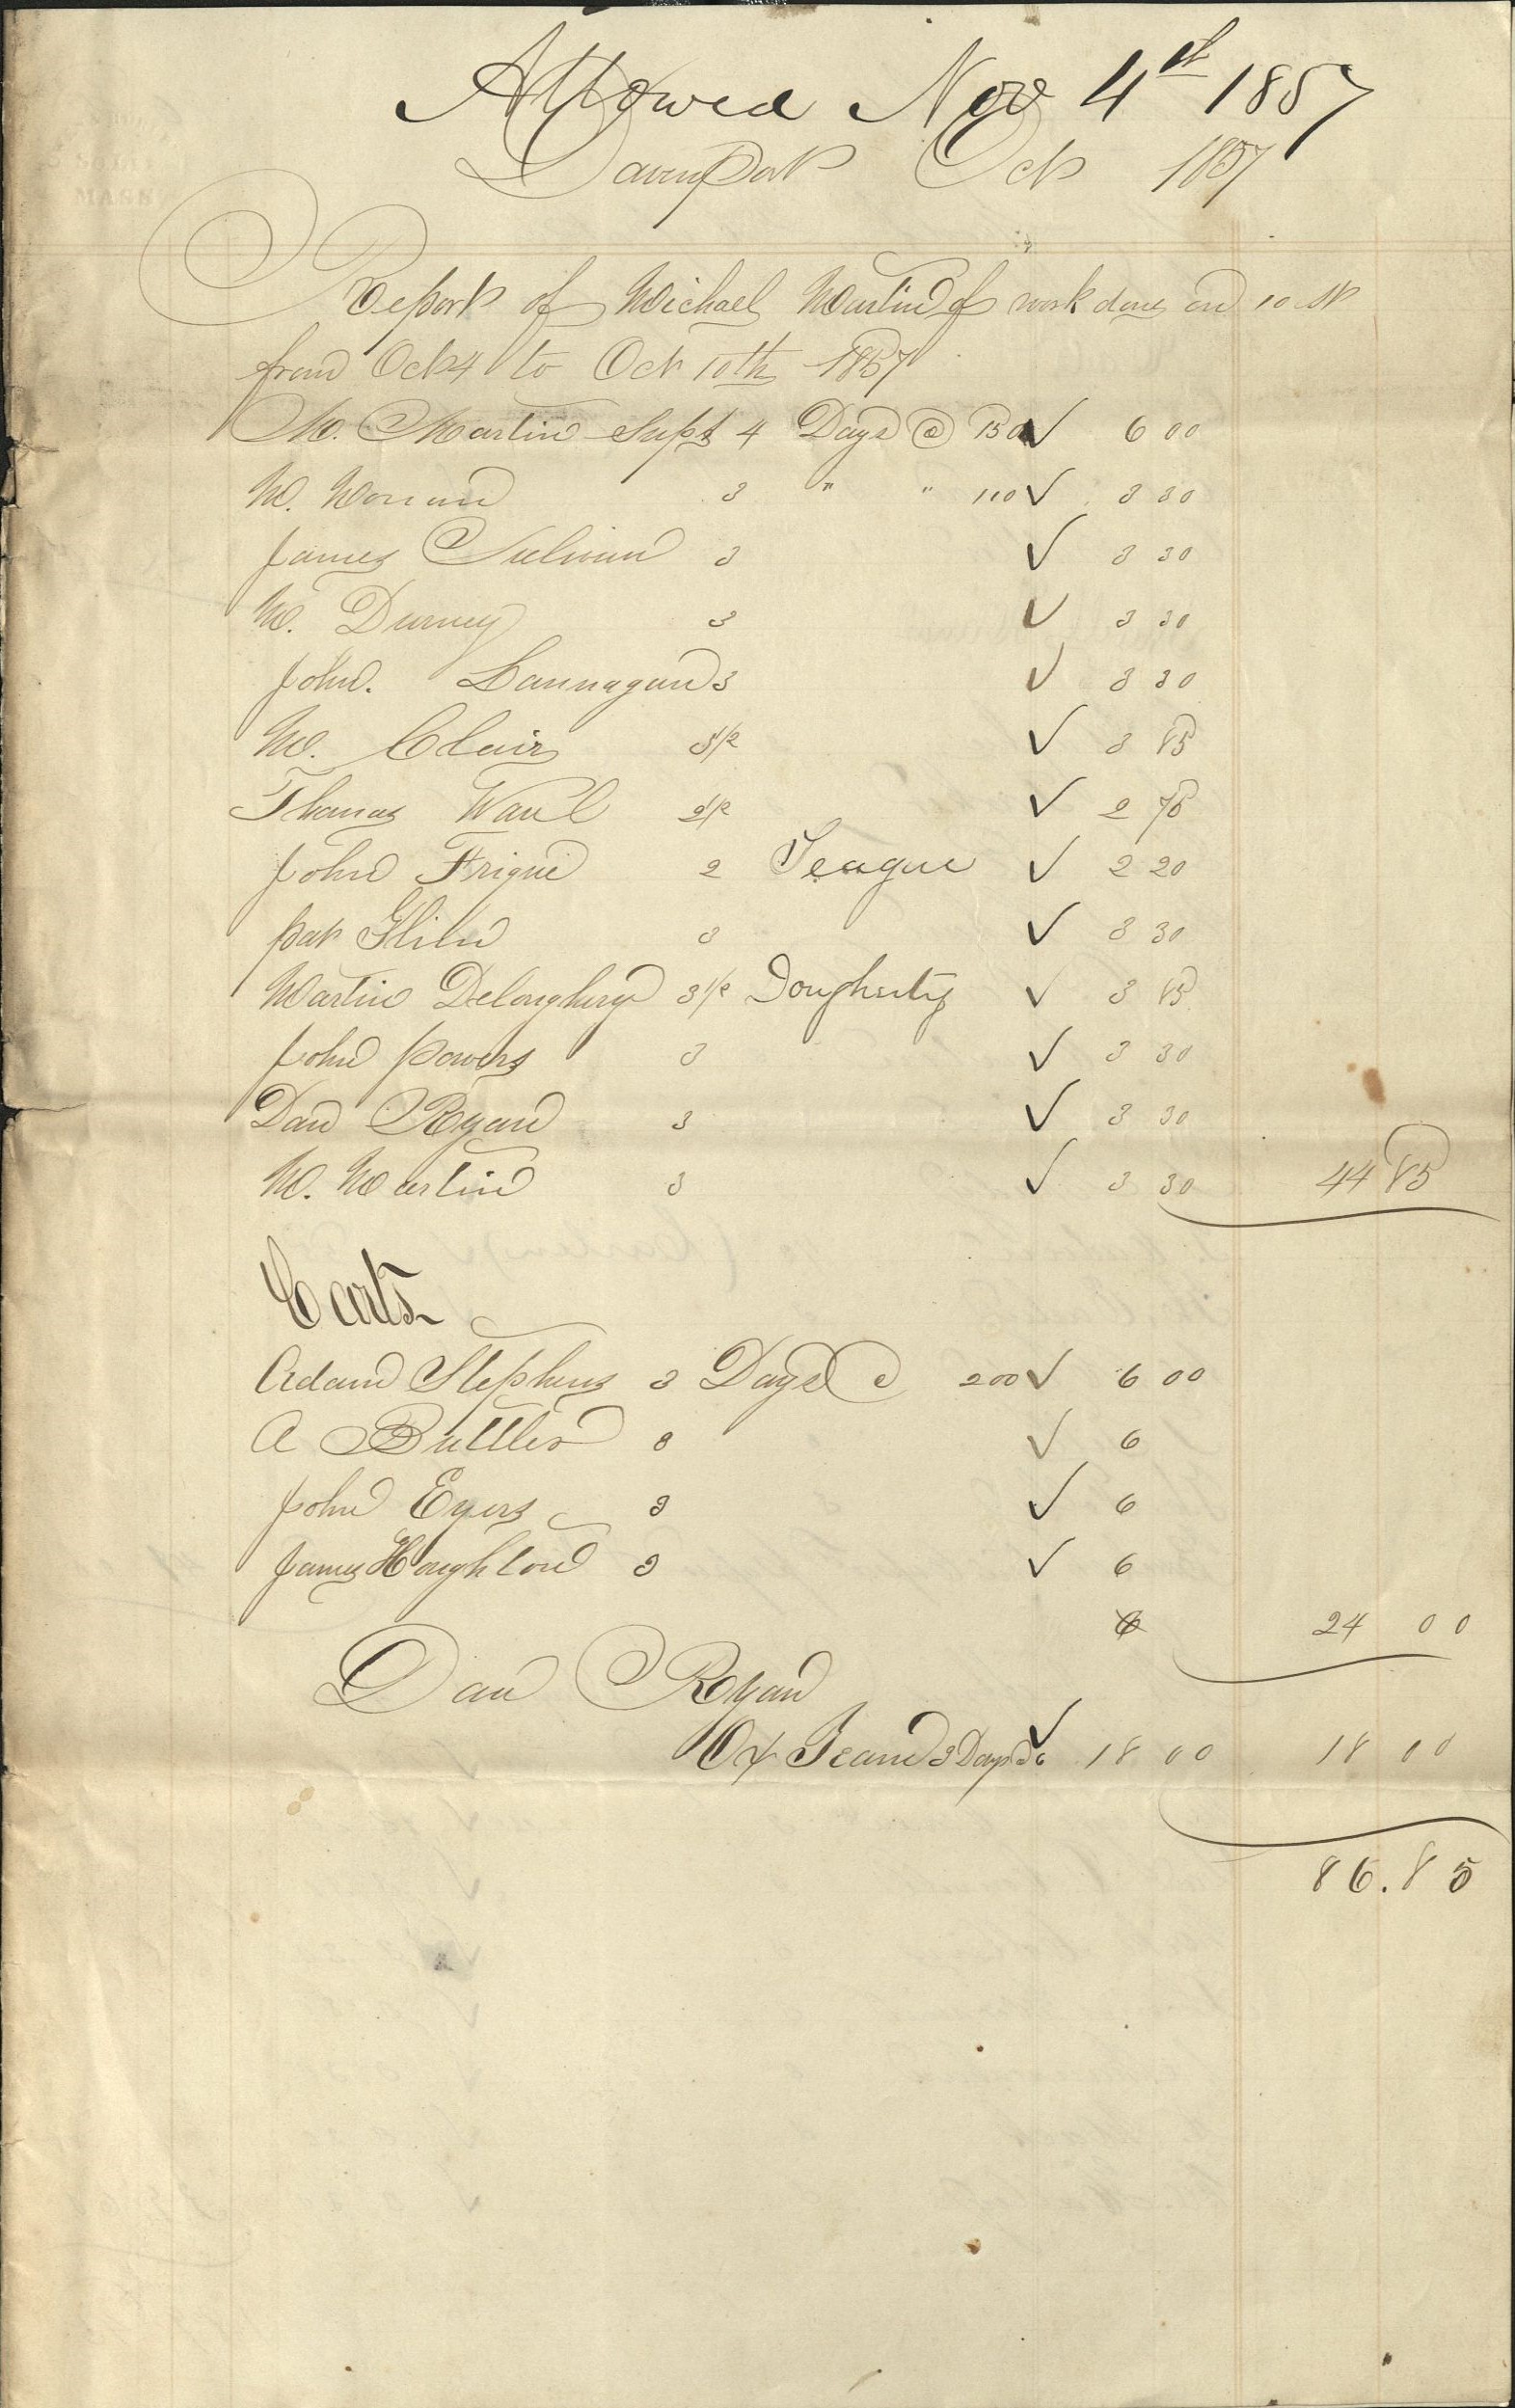 Allowed Nov 4th 1857
Davenport Oct 1857
Report of Michael Martin of work done on 10 St
from Oct 4 to Oct 10th 1857
M. Martin Supt 4 Days @ 150 ✓ 6 00
M. 3 " " 110 ✓ 3 30
James Sulivan 3 ✓ 3 30
M. Durney 3 ✓ 3 30
John. Lannagan 3 ✓ 3 30
M. Clair 3 1/2 ✓ 3 85
Thomas 2 1/2 ✓ 2 75
John 2 Teague ✓ 2 20
Pat Glin 3 ✓ 3 30
Martin Deloughery 3 1/2 Dougherty ✓ 3 85
John Powers 3 ✓ 3 30
Dan Ryan 3 ✓ 3 30
M. Martin 3 ✓ 3 30 44 85
Carts
Adam Stephens 3 Days @ 200 ✓ 6 00
A Buttler 3 ✓ 6
John Eyers 3 ✓ 6
James Houghton 3 ✓ 6
6 24 00
Dan Ryan
Ox Team 3 Days @ 6 ✓ 18 00 18 00
86.85